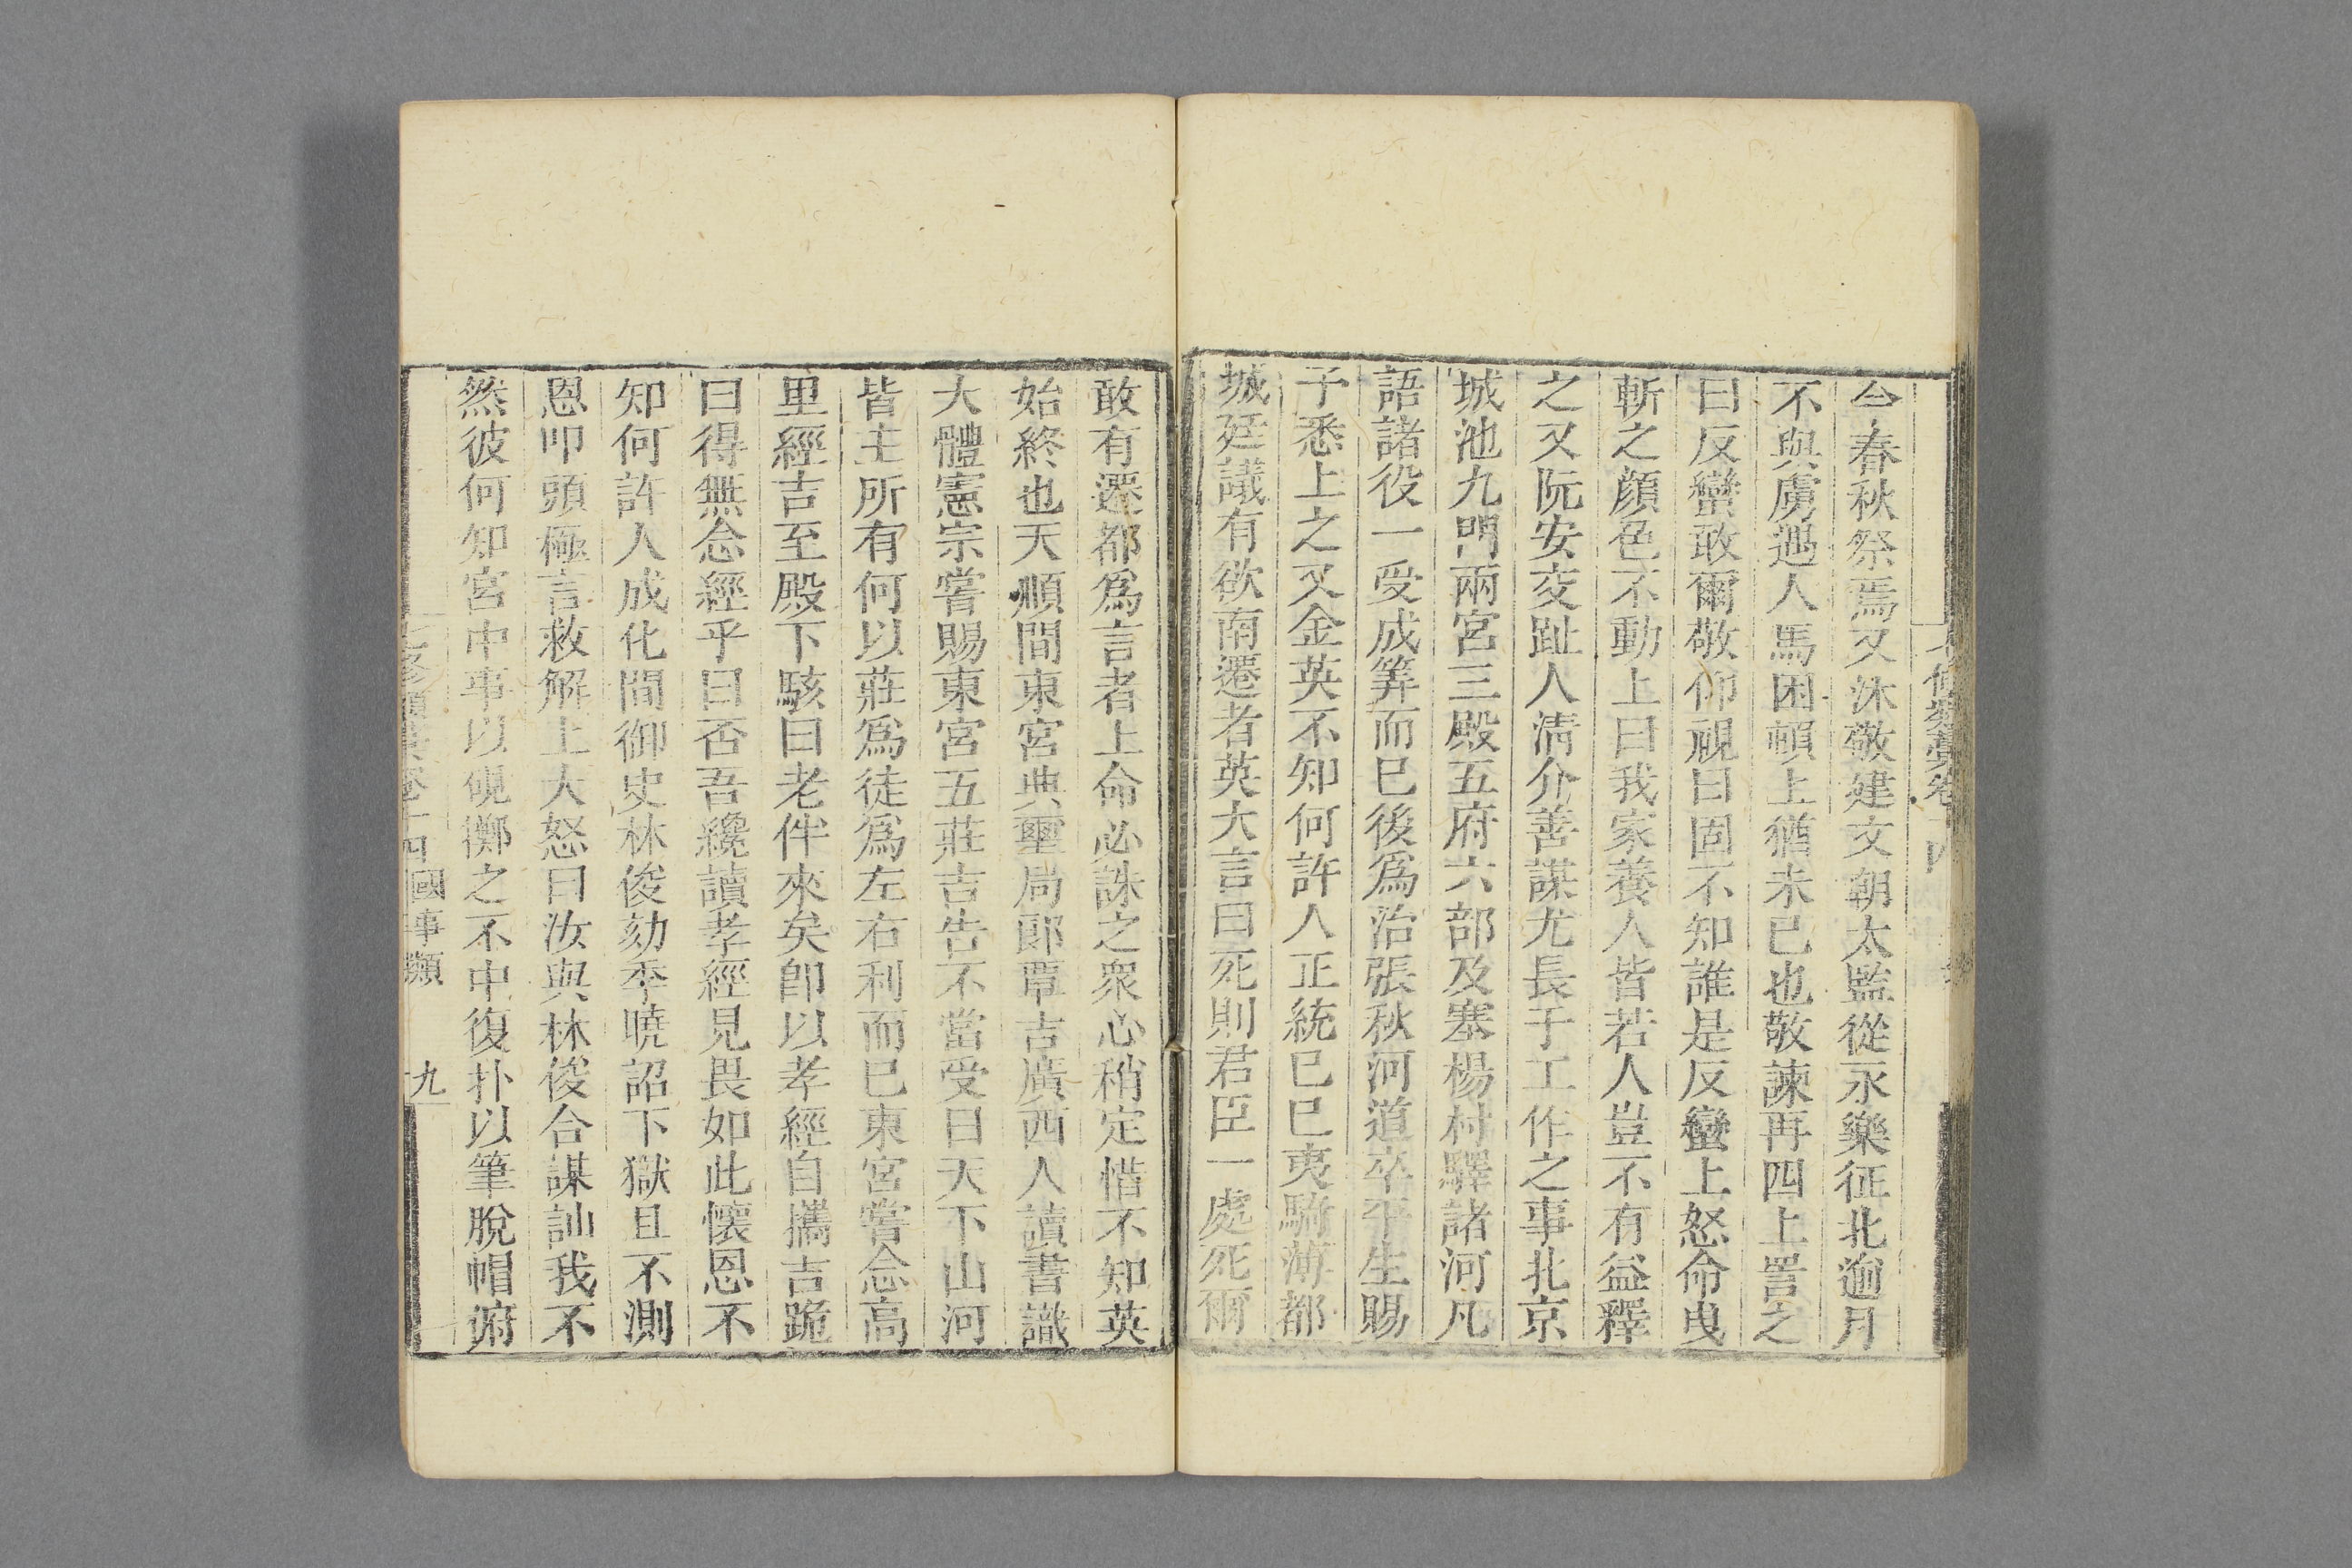 七修類藁卷十四
今春秋祭焉又沐敬建文朝太監從永樂征北逾月
不與虜遇人馬困頓上猶未已也敬諫再四上詈之
曰反蠻敢爾敬仰視曰固不知誰是反蠻上怒命曳
斬之顏色不動上曰我家養人皆若人豈不有益釋
之又阮安交趾人淸介善謀尤長于工作之事北京
城池九門兩宮三殿五府六部及塞楊村驛諸河凡
語諸役一受成筭而已後爲治張秋河道卒平生賜
予悉上之又金英不知何許人正統已巳夷騎薄都
城廷議有欲南遷者英大言曰死則君臣一處死爾
敢有遷都爲言者上命必誅之衆心稍定惜不知英
始終也天順間東宮典璽局郞覃吉廣西人讀書識
大體憲宗嘗賜東宮五莊吉告不當受曰天下山河
皆主所有何以莊爲徒爲左右利而已東宮嘗念高
里經吉至殿下駭曰老伴來矣卽以孝經自攜吉跪
曰得無念經乎曰否吾纔讀孝經見畏如此懷恩不
知何許人成化間御史林俊劾季曉詔下獄且不測
恩叩頭極言救解上大怒曰汝與林俊合謀訕我不
然彼何知宮中事以硯擲之不中復扑以筆脫帽俯
七修類藁卷十四 國事類 九